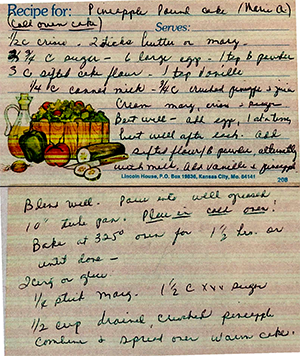 Recipe for: Pineapple Pound Cake (Marie A.)
(Cold oven cake)
Serves:
1/2 c crisco - 2 sticks butter or marg.
2 3/4 c sugar - 6 large egg - 1 tsp b powder
3 c sifted cake flour - 1 tsp vanilla
1/4 c canned milk - 3/4 c crushed pineapple & juice
Cream marg, crisco & sugar
Beat well - add egg 1 at a time,
beat well after each. Add
sifted flour/b powder alternately
with milk. Add vanilla & pineapple
Lincoln House, P.O. Box 16636, Kansas City, Mo. 64141
Blend well. Pour into well greased
10" tube pan. Place in cold oven!
Bake at 325° oven for 1 1/2 hrs. or
until done -
Icing or glaze
1/4 stick marg. 1 1/2 c xxx sugar
1/2 cup drained, crushed pineapple
combine & spread over warm cake.